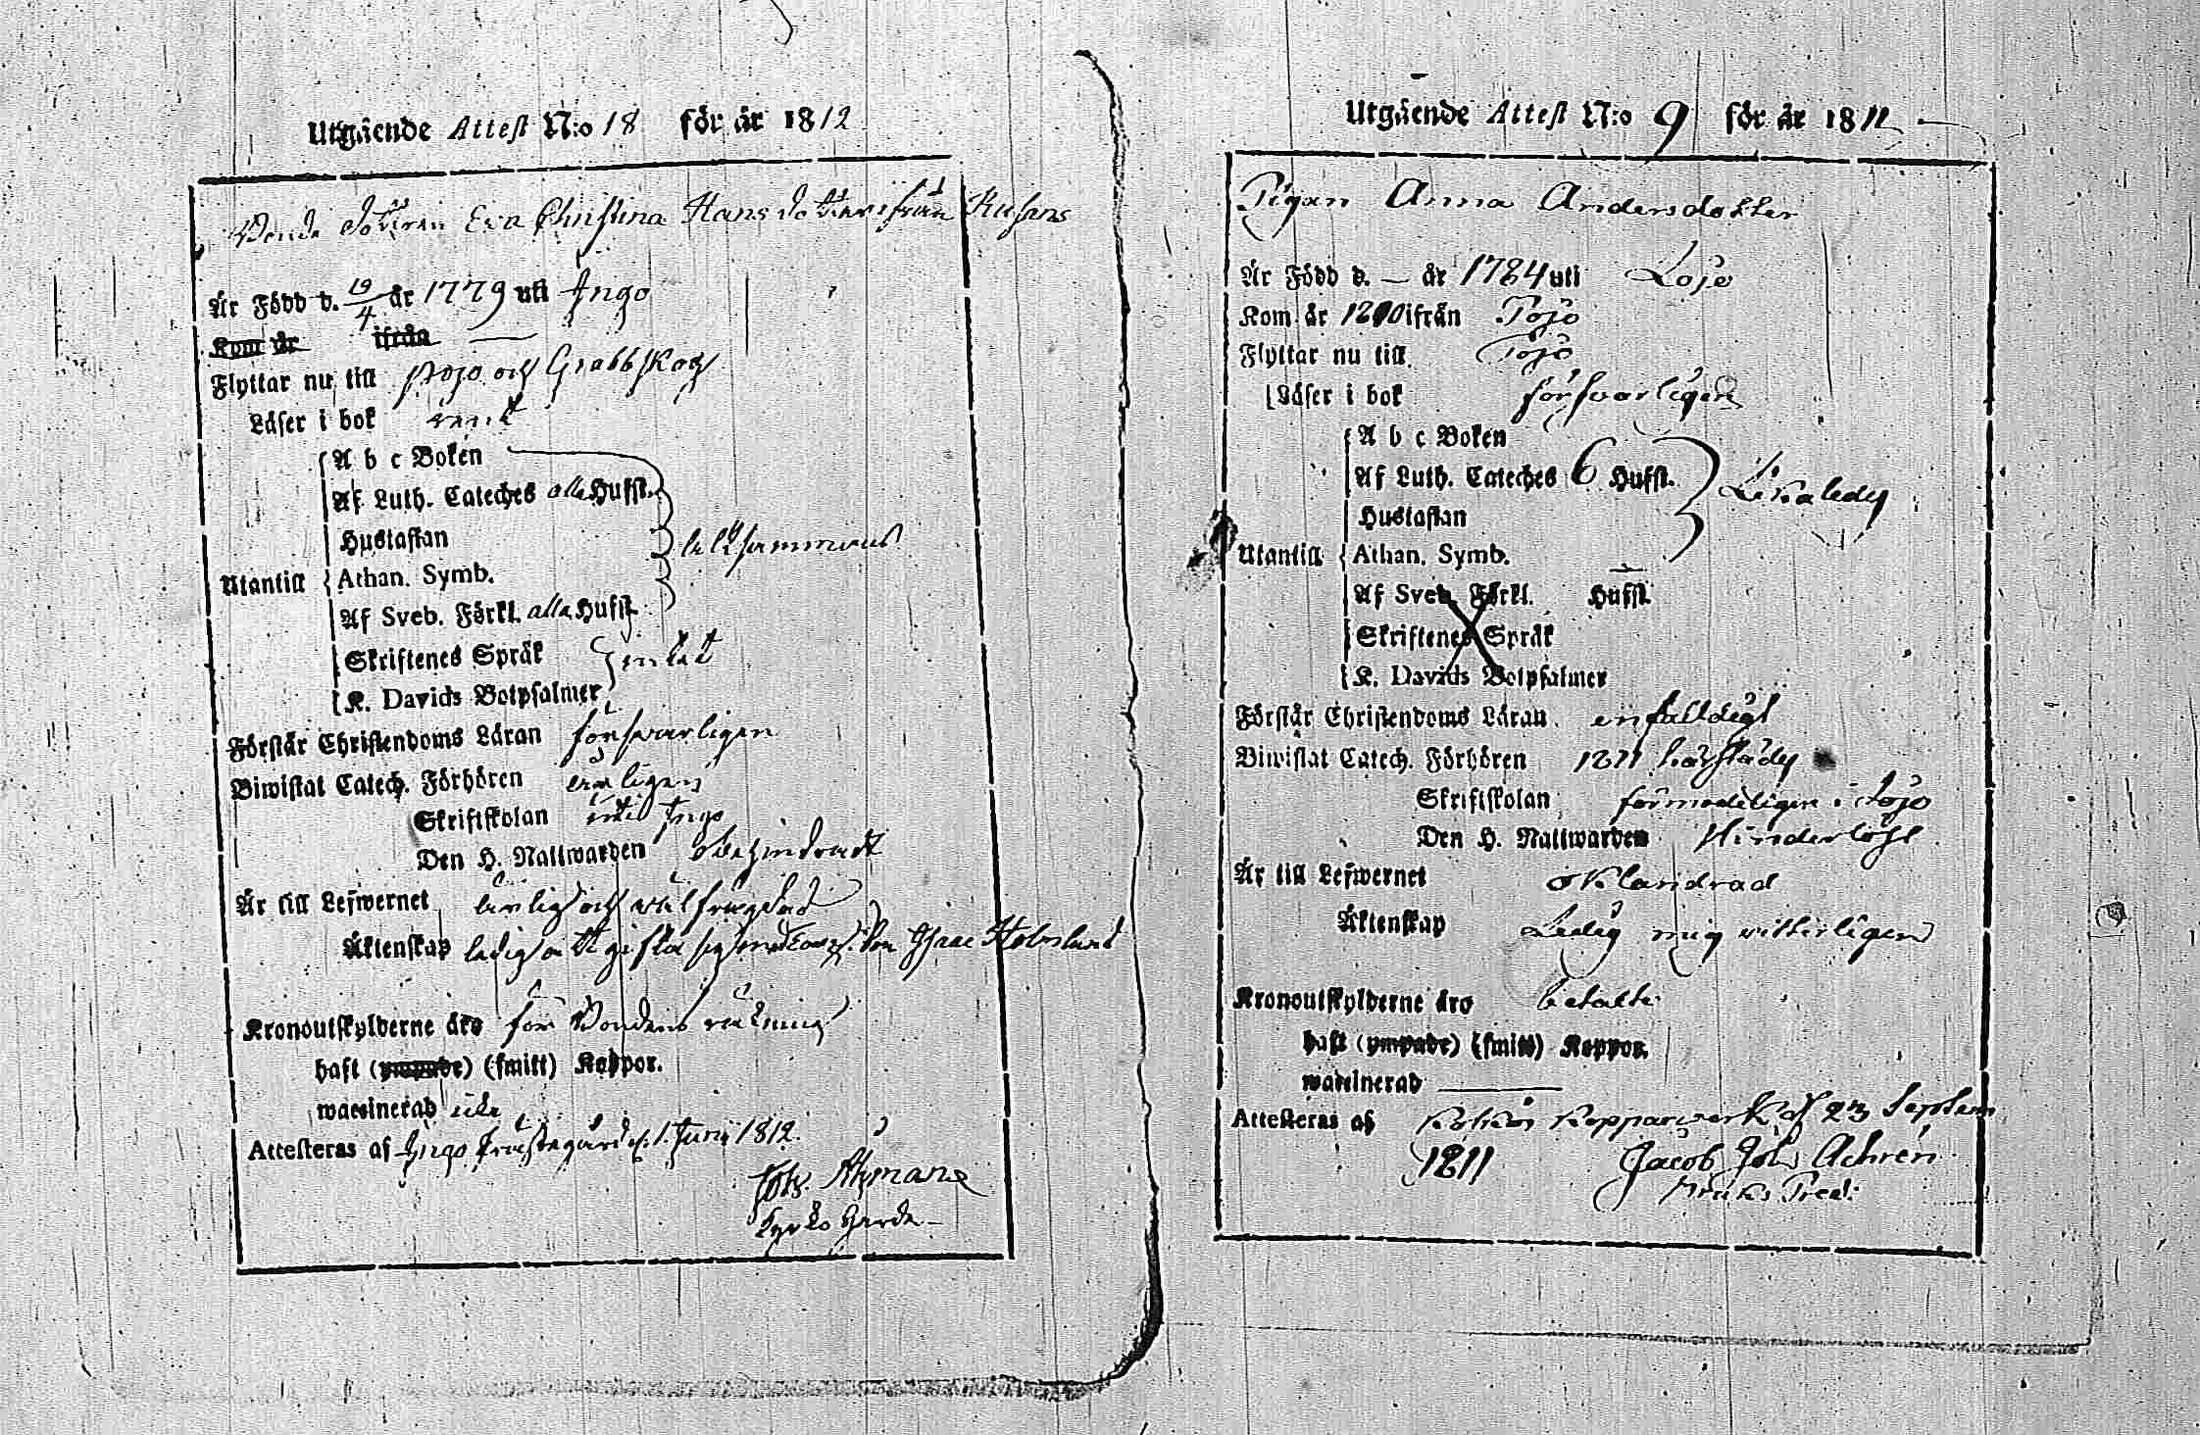 Utgående Attest N:o 18 för år 1812
Bonde Dottren Eva Christina Hansdotter ifrån Kusans
Är Född d. 19/4 år 1779 uti Ingo
Kom år ifrån —
Flyttar nu till Pojo och Grabbskog
Läser i bok rent
A b c Boken
Af Luth. Cateches alla Hufst.
Hustaflan
Utantill Athan. Symb.
Af Sveb. Förkl. alla Hufst.
Skriftenes Språk
K. Davids Botpsalmer
Förstår Christendoms Läran försvarligen
Biwistat Catech. Förhören årligen
Skriftskolan uti Ingo
Den H. Nattwarden obehindradt
Är till Lefwernet ärlig och välfrägdad
Äktenskap ledig att gifta sig med Isaac Holmlund
Kronoutskylderne äro för Bondens räkning
haft (ympade) (smitt) Koppor.
waccinerad icke
Attesteras af Ingo Prästegård d. 1. Junii 1812.
Utgående Attest N:o 9 för år 1811
Pigan Anna Andersdotter
Är Född d. — år 1784 uti Lojo
Kom år 1810 ifrån Pojo
Flyttar nu till Pojo
Läser i bok försvarligen
A b c Boken
Af Luth. Cateches 6 Hufst.
Hustaflan
Utantill Athan. Symb.
Af Sveb. Förkl. Hufst.
Skriftenes Språk
K. Davids Botpsalmer
Förstår Christendoms Läran enfaldigt
Biwistat Catech. Förhören 1811 härstädes
Skriftskolan förmodeligen i Lojo
Den H. Nattwarden Hinderlöst
Är till Lefwernet oklandrad
Äktenskap Ledig mig vitterligen
Kronoutskylderne äro betalte
haft (ympade) (smitt) Koppor.
waccinerad —
Attesteras af Kopparwerk d 23 Septem
1811 Jacob Joh Achrén
Bruks Pred: